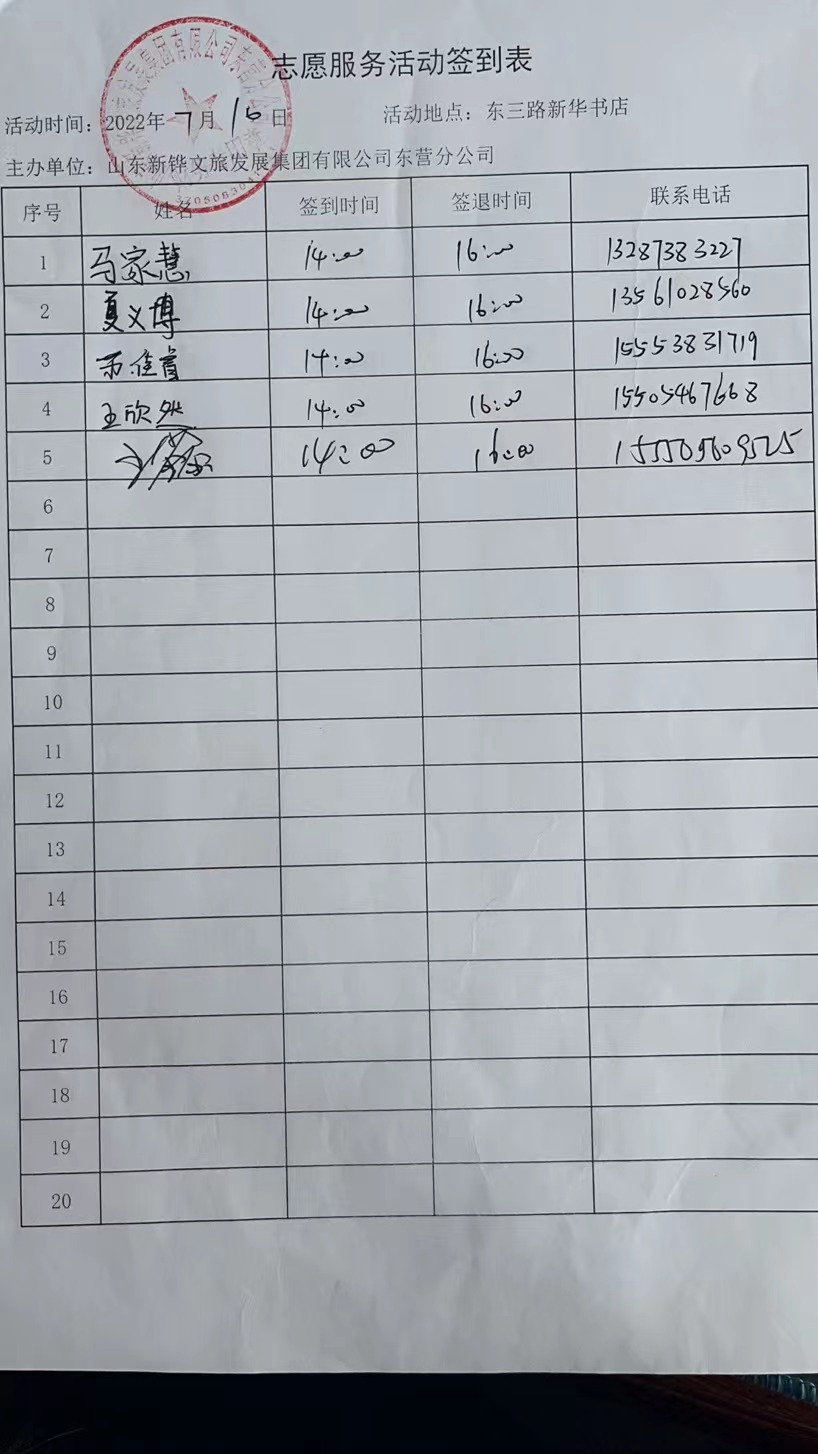 志愿服务活动签到表
活动时间：2022年7月16日 活动地点：东三路新华书店
主办单位：山东新铧文旅发展集团有限公司东营分公司
序号 姓名 签到时间 签退时间 联系电话
1 马家慧 14:00 16:00 13287383227
2 夏义博 14:00 16:00 13561028560
3 佳睿 14:00 16:00 15553831719
4 王欣然 14:00 16:00 15505467668
5 14:00 16:00
6
7
8
9
10
11
12
13
14
15
16
17
18
19
20